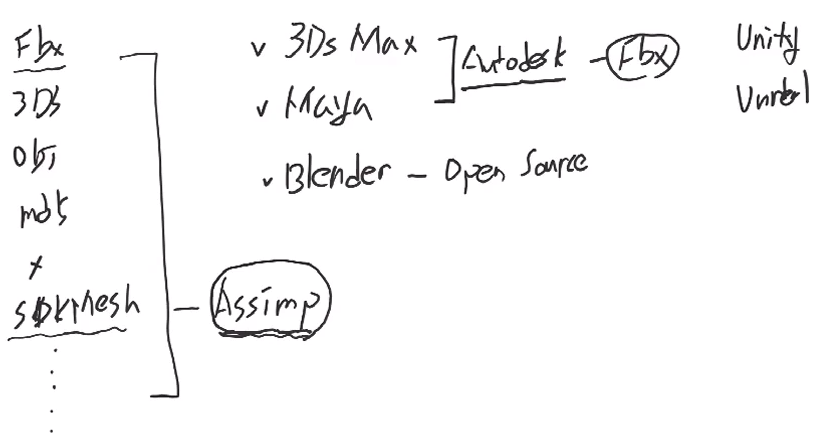 Fbx
3Ds
Obj
md5
x
SDKMesh
Assimp
v 3Ds Max
v Maya
Autodesk – Fbx
v Blender – Open Source
Unity
Unreal